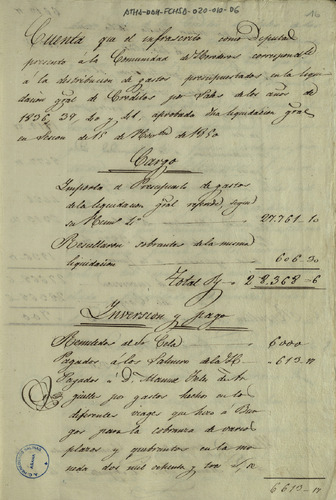 ATHA-DOH-FCHSD-020-010-06
16
Cuenta que el infrascrito como Diputado
presenta a la Comunidad de Herederos correspond.te
a la distribucion de gastos presupuestados en la liqui-
dacion gral de Creditos por Sales de los años de
1836, 39, 40 y 41. aprobada dha liquidacion gral
en Sesion de 15 de Novbre de 1850
Cargo
Importa el Presupuesto de gastos
de la liquidacion gral referida, segun
su Num.o 1o 27.761.10
Resultaron sobrantes de la misma
liquidacion 606.30
Total Rs 28,368-6
Inversion y pago
Remitidos al Sr 6000
Pagados a los Salineros de la 613.17
Pagados a D. Manuel Felix de Ar-
guelles por gastos hechos en los
diferentes viages que hizo a Bur-
gos para la cobranza de varios
plazos y quebrantos en la mo-
neda dos mil ochenta y tres
6613-17